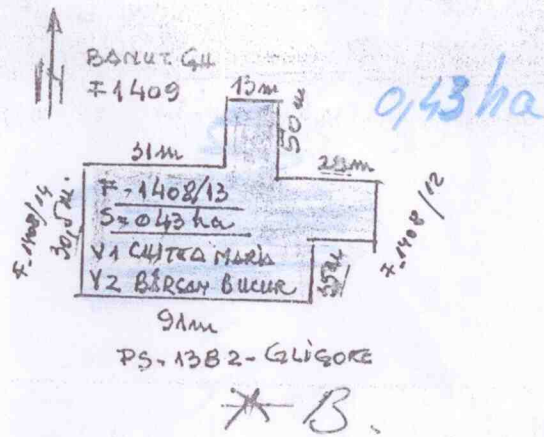 BANUT GH
F 1409
13 m
0,43 ha
50 m
31 m
28 m
F-1408/14
30,5 m.
F-1408/13
S=0,43 ha
V1 CHITEA MARIA
V2 BÂRSAN BUCUR
35 m
F-1408/12
91 m
PS-1382-GLIGORE
B.